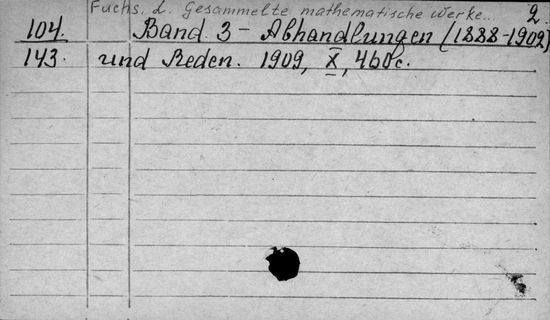 Fuchs, L. Gesammelte mathematische Werke... 2.
104. Band 3 - Abhandlungen (1888-1902)
143. und Reden. 1909, X, 460c.